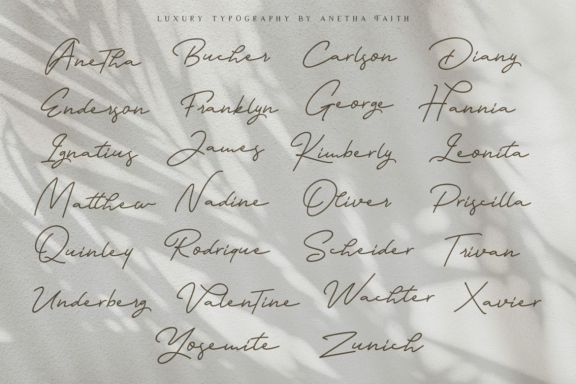 LUXURY TYPOGRAPHY BY ANETHA FAITH
Anetha Bucher Carlson Diany
Enderson Franklyn George Hannia
Ignatius James Kimberly Leonita
Matthew Nadine Oliver Priscilla
Quinley Rodrique Scheider Trivan
Underberg Valentine Wachter Xavier
Yosemite Zunich